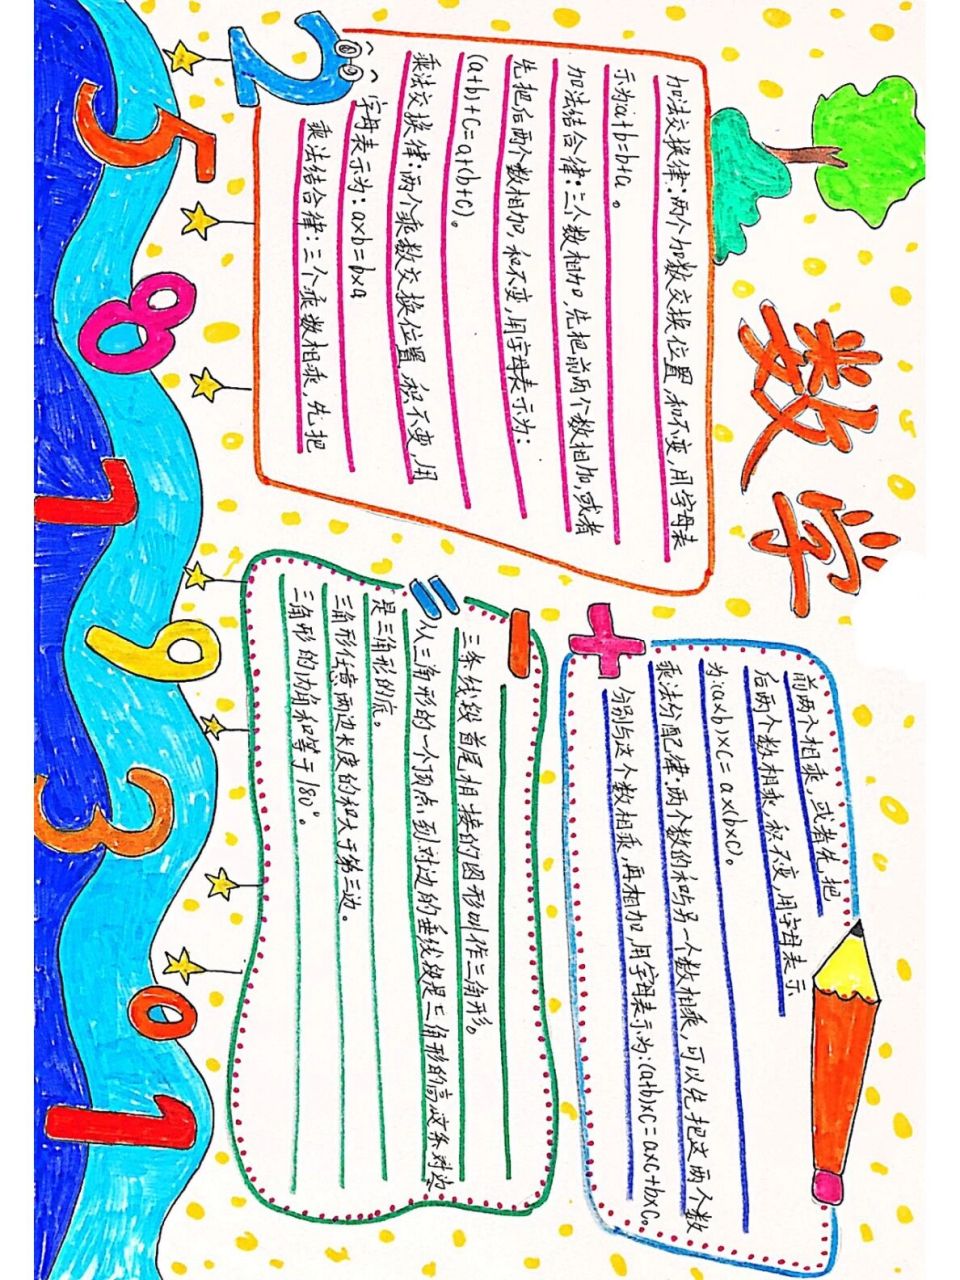 数学
加法交换律：两个加数交换位置，和不变，用字母表
示为：a+b=b+a。
加法结合律：三个数相加，先把前两个数相加，或者
先把后两个数相加，和不变，用字母表示为：
(a+b)+C=a+(b+C)。
乘法交换律：两个乘数交换位置，积不变，用
字母表示为：a×b=b×a
乘法结合律：三个乘数相乘，先把
前两个相乘，或者先把
后两个数相乘，积不变，用字母表示
为：(a×b)×C=a×(b×C)。
乘法分配律：两个数的和与另一个数相乘，可以先把这两个数
分别与这个数相乘，再相加，用字母表示为：(a+b)×C=a×C+b×C。
三条线段首尾相接的图形叫作三角形。
从三角形的一个顶点到对边的垂线段是三角形的高，这条对边
是三角形的底。
三角形任意两边长度的和大于第三边。
三角形的内角和等于180°。
+
-
=
2
5
8
7
9
3
0
1